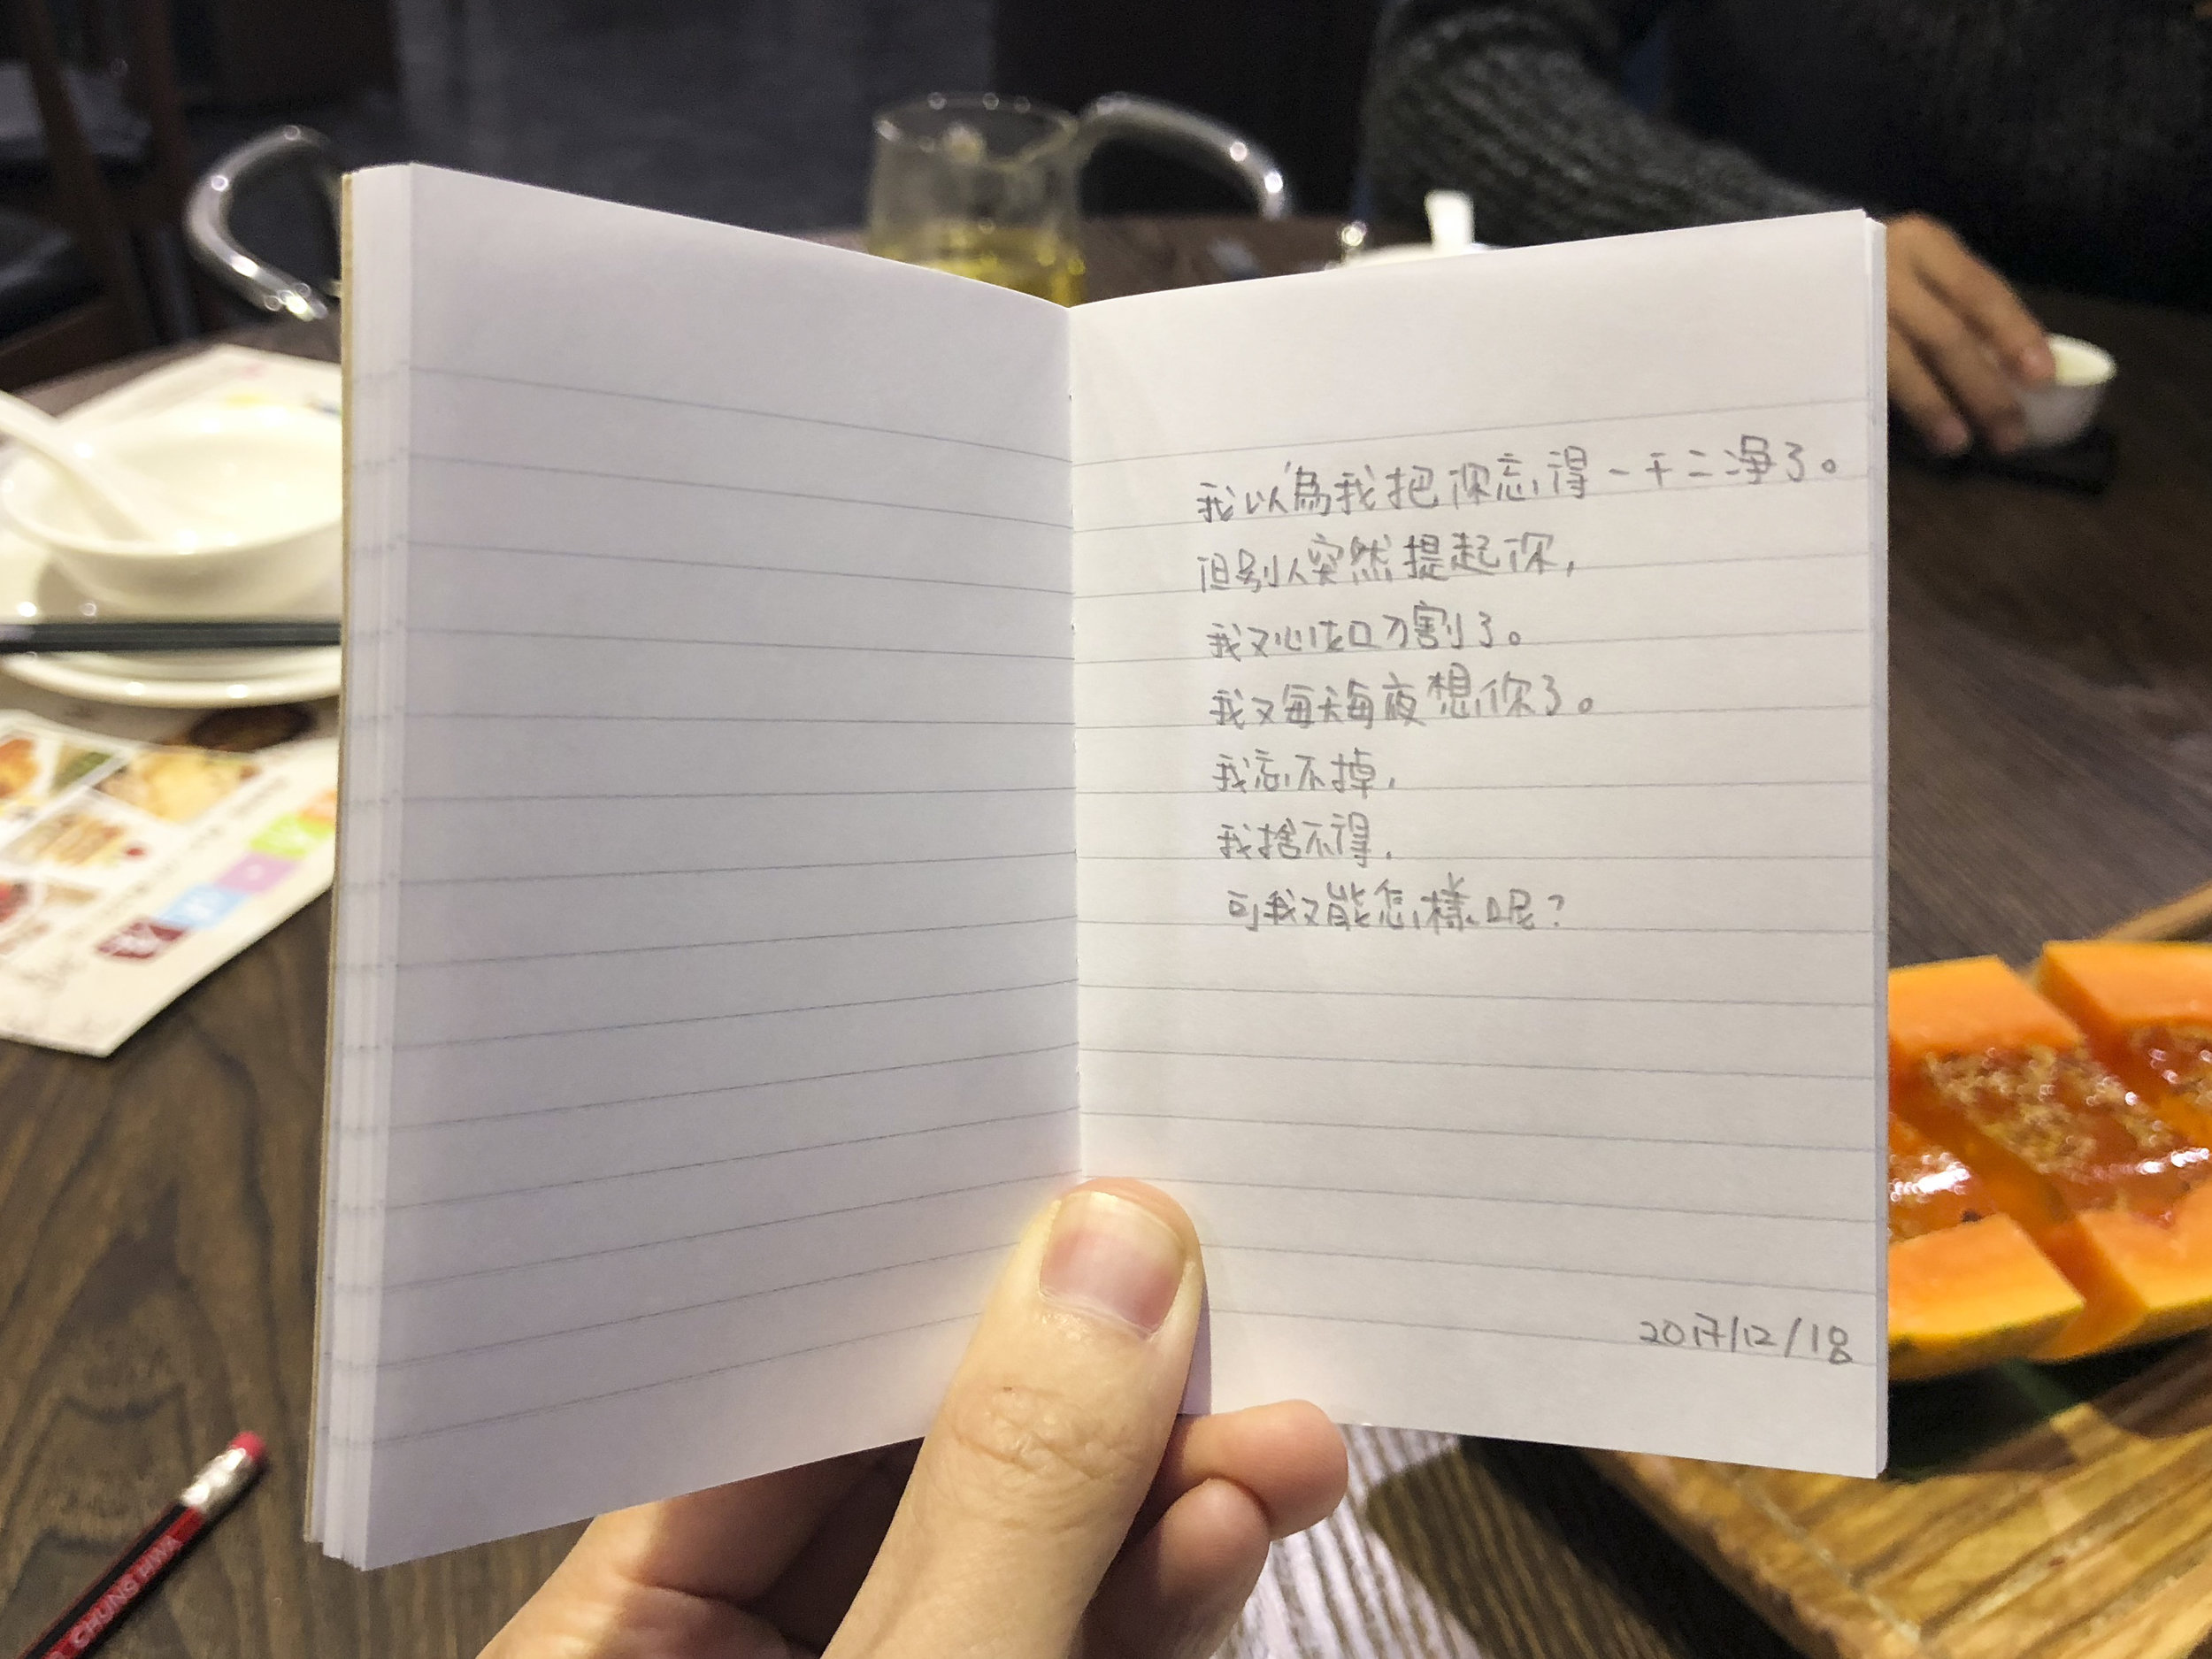 我以為我把你忘得一干二淨了。
但別人突然提起你,
我又心如刀割了。
我又每天每夜想你了。
我忘不掉,
我捨不得,
可我又能怎樣呢?
2017/12/18
CHUNG HWA